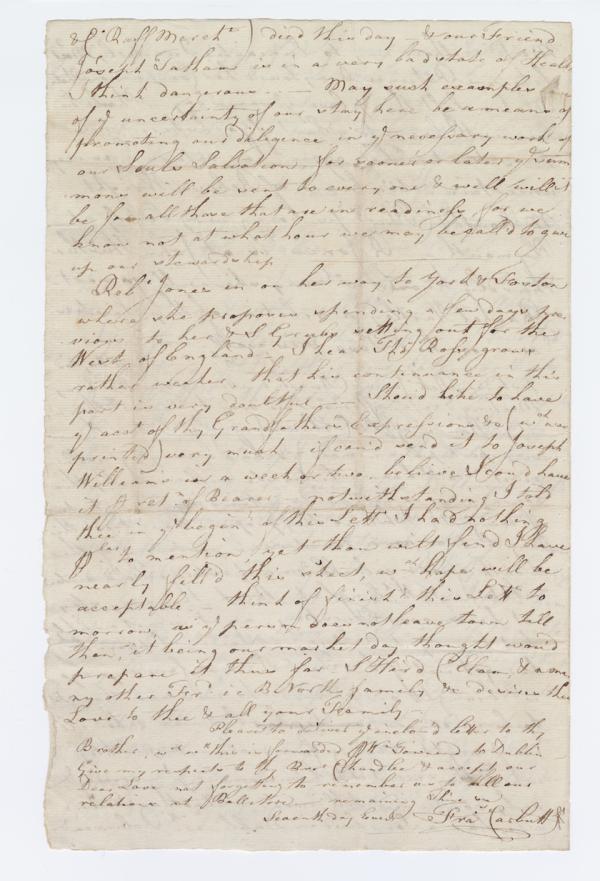 & Co Raff Mercht) died this day — & our Friend
Joseph Tatham is in a very bad state of Health
I think dangerous — May such examples
of ye uncertainty of our stay here be a means of
promoting our diligence in ye necessary work of
our Souls Salvation for sooner or later ye sum
mons will be sent to every one & well will it
be for all those that are in readiness, for we
know not at what hour we may be call'd to give
up our stewardship
Reba Jones is on her way to York &
where she proposes spending a few days pre
vious to her & S Grubb setting out for the
West of England — I hear Thos
rather weaker, that his continuance in this
part is very doubtful — Shou'd like to have
ye acct of thy Grandfathers Expressions &c (wch were
printed) very much if cou'd send it to Joseph
Williams for a week or two, believe I cou'd have
it retn of Bearer notwithstanding I told
thee in ye beging of this Lettr I had nothing
to mention, yet thou wilt find I have
nearly fill'd this sheet, wch hope will be
acceptable think of finishg this Lettr to
morrow, as ye person does not leave town till
then, it being our market day thought wou'd
prepare it thus far S Hird & ma
ny other Frds ie family &c desires their
Love to thee & all your Family —
Please to deliver ye enclos'd letter to thy
Brother, wch this is forwarded to Dublin
Give my respects to & accept our
Dear Love not forgetting to remember us to all our
relations at Ballitore — remaining thine
Seventh day Eveng Fras